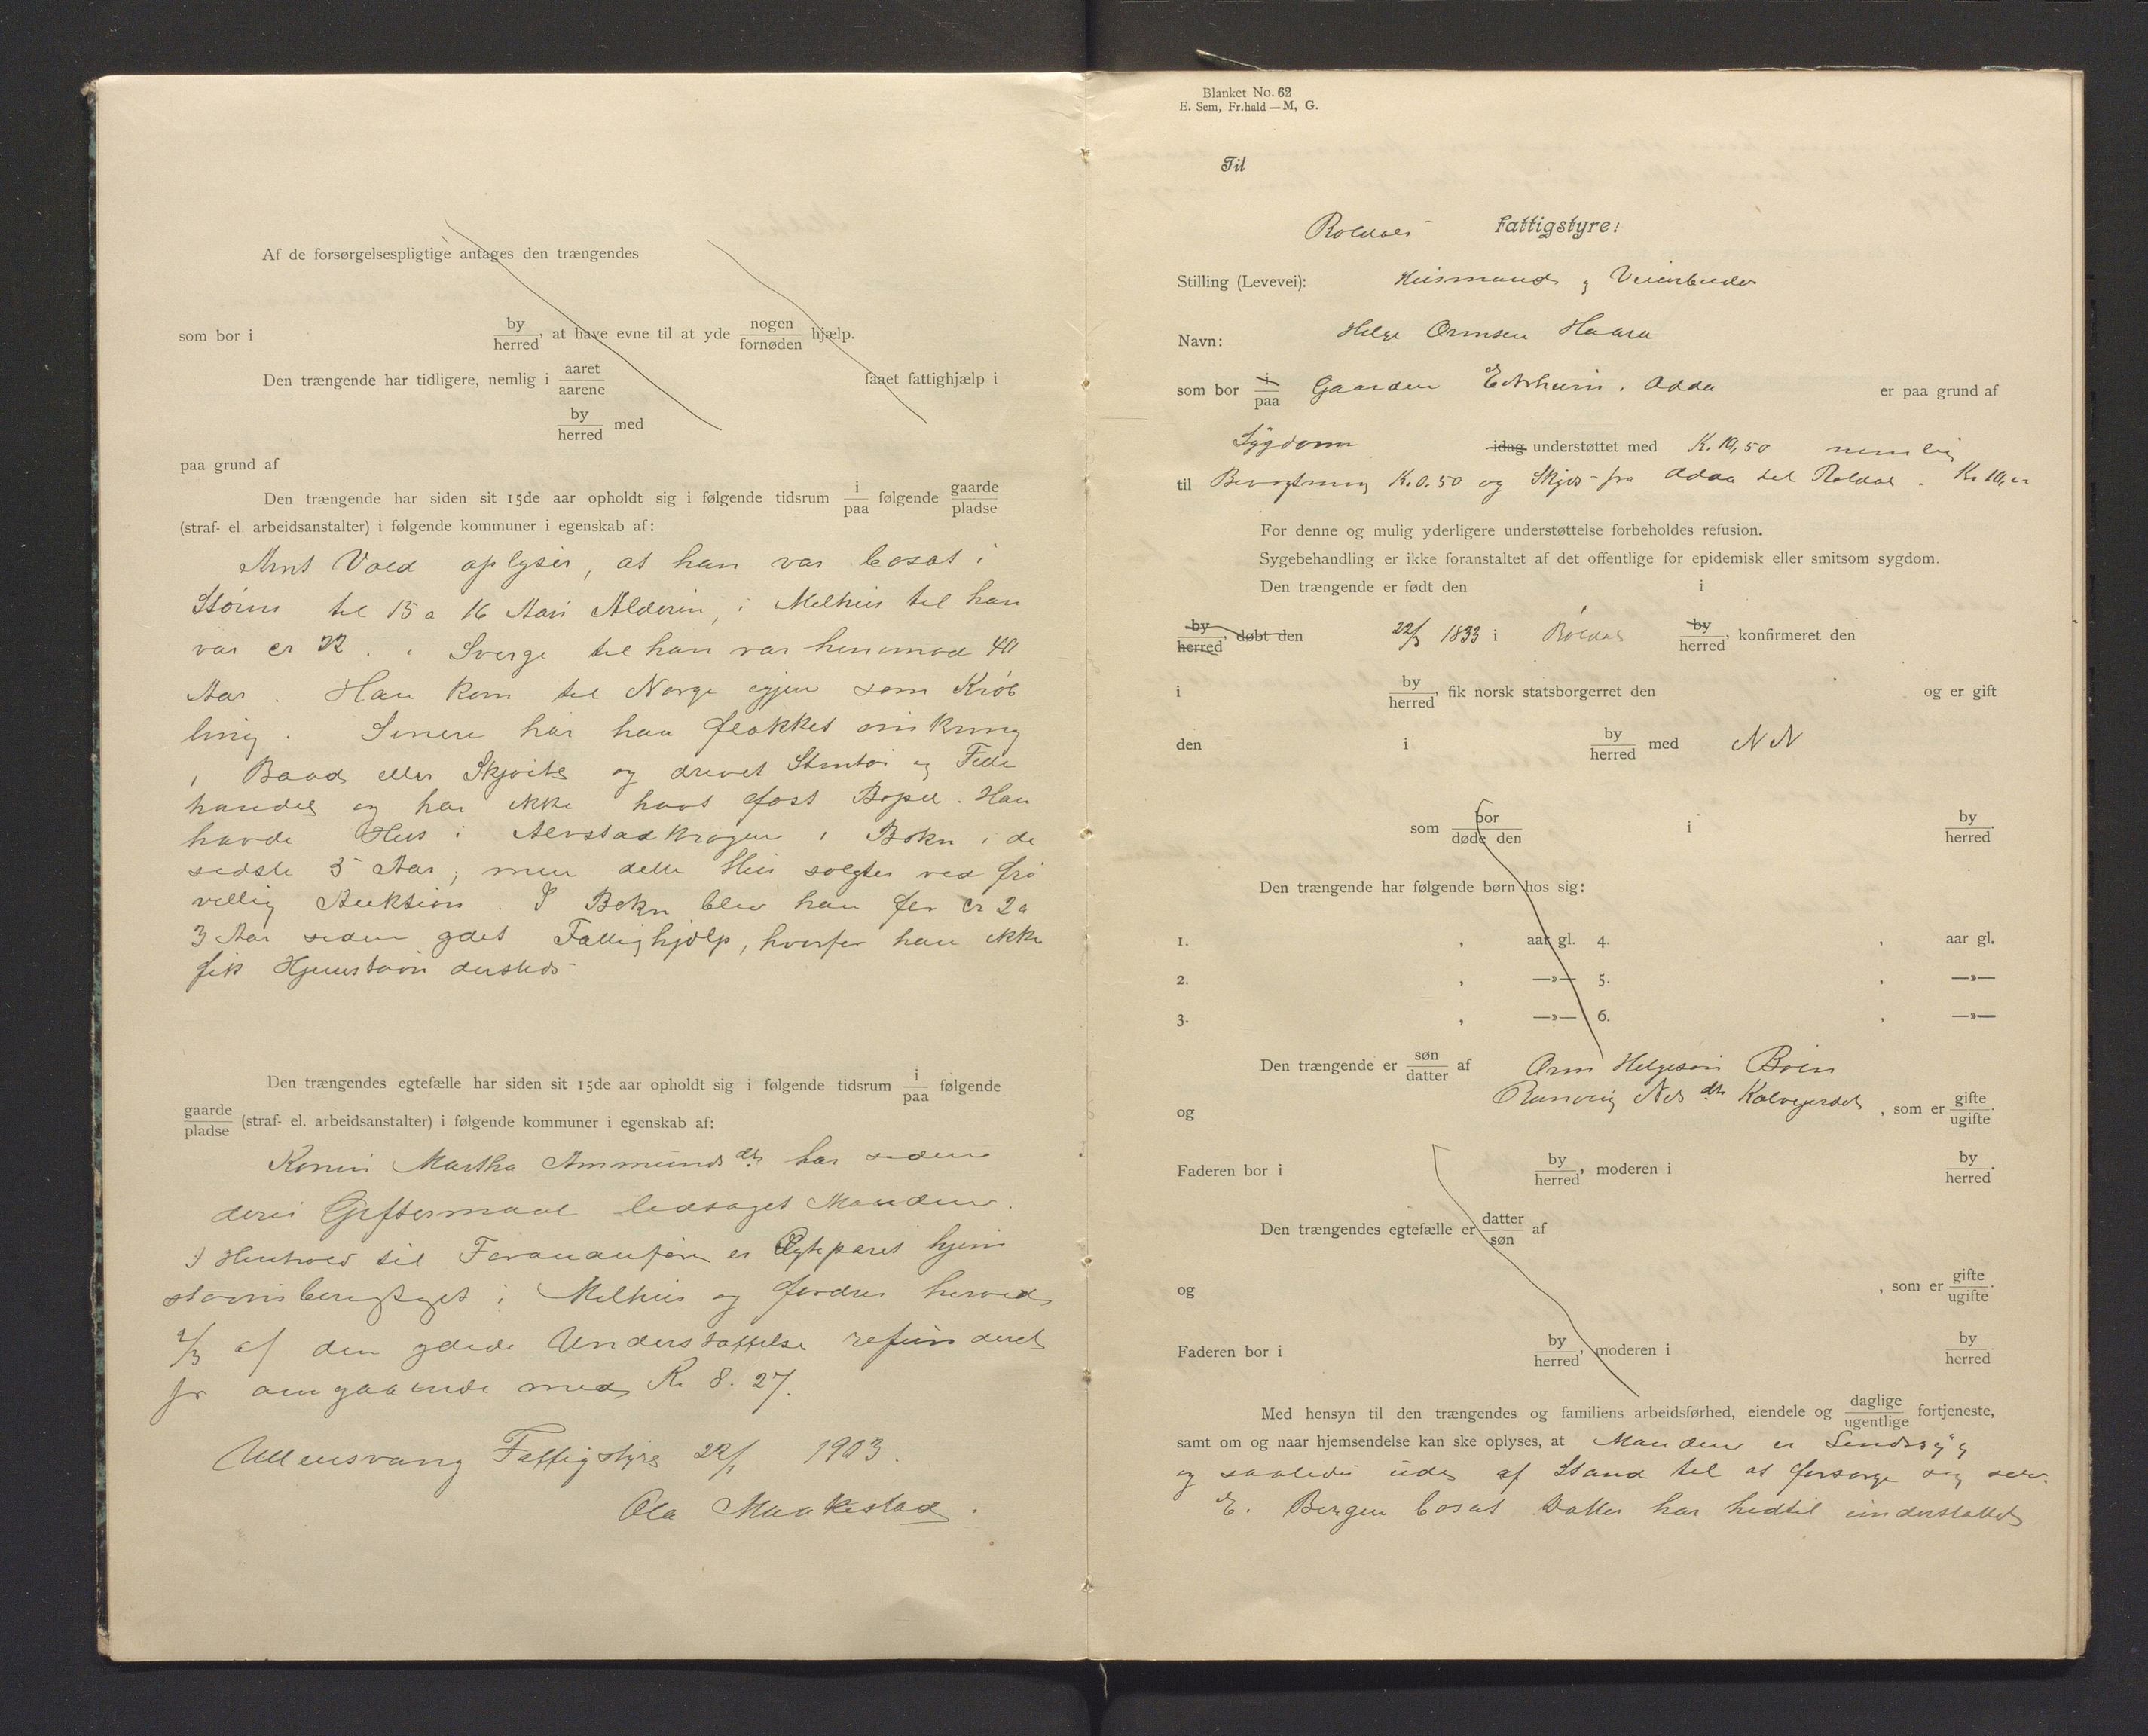 Af de forsørgelsespligtige antages den trængendes
som bor i by/herred, at have evne til at yde nogen/fornøden hjælp.
Den trængende har tidligere, nemlig i aaret/aarene faaet fattighjælp i
by/herred med
paa grund af
Den trængende har siden sit 15de aar opholdt sig i følgende tidsrum i/paa følgende gaarde/pladse
(straf- el arbeidsanstalter) i følgende kommuner i egenskab af:
Arnt Vold oplyser, at han var bosat i
Støren til 15 a 16 Aars Alderen, i Melhus til han
var cr 22. i Sverge til han var henimod 40
Aar. Han kom til Norge igjen som Krøb
ling. Senere har han flakket omkring
i Baad eller Skjøite og drevet Stentøi og Fille
handel og har ikke havt fast Bopæl. Han
havde Hus i Alvstadkrogen i Bokn i de
sidste 5 Aar; men dette Hus solgtes ved fri
villig Auktion. I Bokn blev han for cr 2 a
3 Aar siden ydet Fattighjælp, hvorfor han ikke
fik Hjemstavn dersteds
Den trængendes egtefælle har siden sit 15de aar opholdt sig i følgende tidsrum i/paa følgende
gaarde/pladse (straf- el. arbeidsanstalter) i følgende kommuner i egenskab af:
Konen Martha Ammunds dtr har siden
deres Giftermaal ledsaget Manden.
I Henhold til Forananførte er Egteparet hjem
stavnsberegtiget i Melhus og fordres herved
2/3 af den ydede Understøttelse refunderet
pr omgaaende med Kr. 8.27.
Ullensvang Fattigstyre 22/1 1903.
Ola Maakestad.
Blanket No. 62
E. Sem, Fr.hald—M, G.
Til
Røldals Fattigstyre!
Stilling (Levevei): Husmand og Veiarbeider
Navn: Helge Ormsen Haara
som bor i/paa Gaarden Eitrheim, Odda er paa grund af
Sygdom idag understøttet med Kr. 10,50 nemlig
til Bevogtning Kr. 0.50 og Skjds fra Odda til Røldal. Kr 10,00
For denne og mulig yderligere understøttelse forbeholdes refusion.
Sygebehandling er ikke foranstaltet af det offentlige for epidemisk eller smitsom sygdom.
Den trængende er født den i
by/herred, døbt den 22/3 1833 i Røldal by/herred, konfirmeret den
i by/herred, fik norsk statsborgerret den og er gift
den i by/herred med N N
som bor/døde den i by/herred.
Den trængende har følgende børn hos sig:
1. , aar gl. 4. , aar gl.
2. , —»— 5. , —»—
3. , —»— 6. , —»—
Den trængende er søn/datter af Orm Helgesøn Bøen
og Ranveig Nels dtr Kalvegerdet, som er gifte/ugifte.
Faderen bor i by/herred, moderen i by/herred.
Den trængendes egtefælle er datter/søn af
og , som er gifte/ugifte.
Faderen bor i by/herred, moderen i by/herred
Med hensyn til den trængendes og familiens arbeidsførhed, eiendele og daglige/ugentlige fortjeneste,
samt om og naar hjemsendelse kan ske oplyses, at Manden er Sindssyg
og saaledes ude af Stand til at forsørge sig selv.
E. Bergen bosat Datter har hidtil understøttet